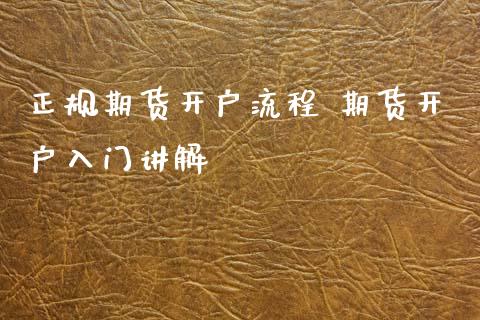 正规期货开户流程 期货开
户入门讲解